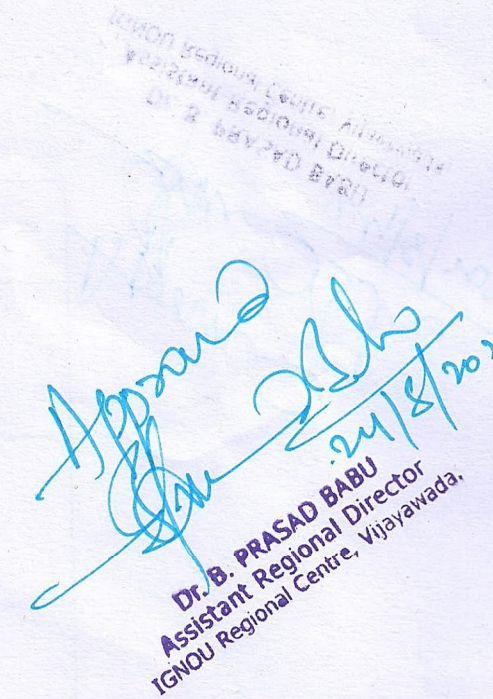 Approved
24/8/202
Dr. B. PRASAD BABU
Assistant Regional Director
IGNOU Regional Centre, Vijayawada.